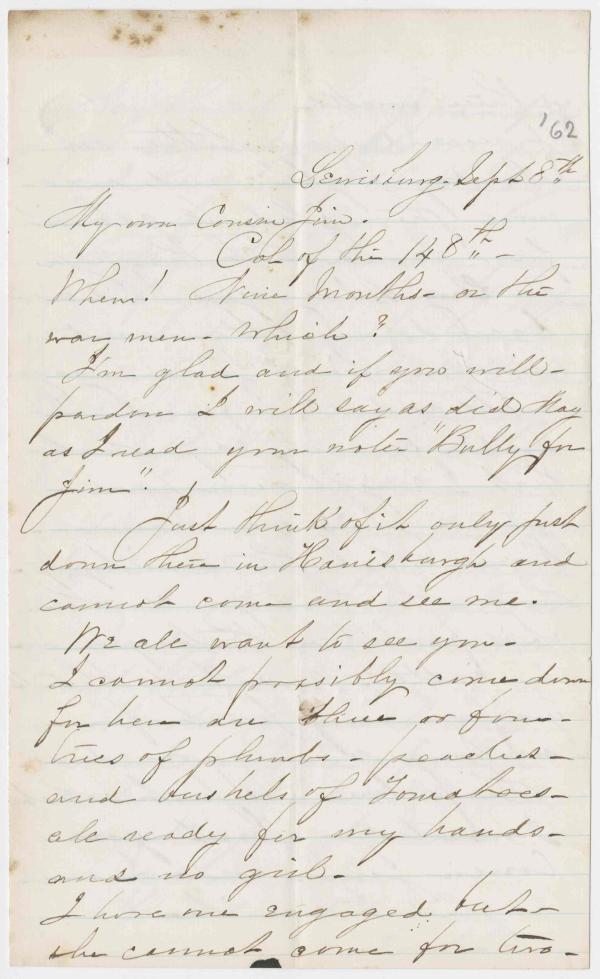 '62
Lewisburg Sept 8th
My own Cousin Jim.
Col of the 148th -
Whew! Nine Months - or the
war men - which?
I'm glad and if you will -
pardon I will say as did May
as I read your note - "Bully for
Jim".
Just think of it only just
down there in Harrisburgh and
cannot come and see me.
We all want to see you -
I cannot possibly come down
for here are three or four -
trees of plumbs - peaches -
and bushels of Tomatoes -
all ready for my hands -
and no girl -
I have one engaged but -
she cannot come for two -